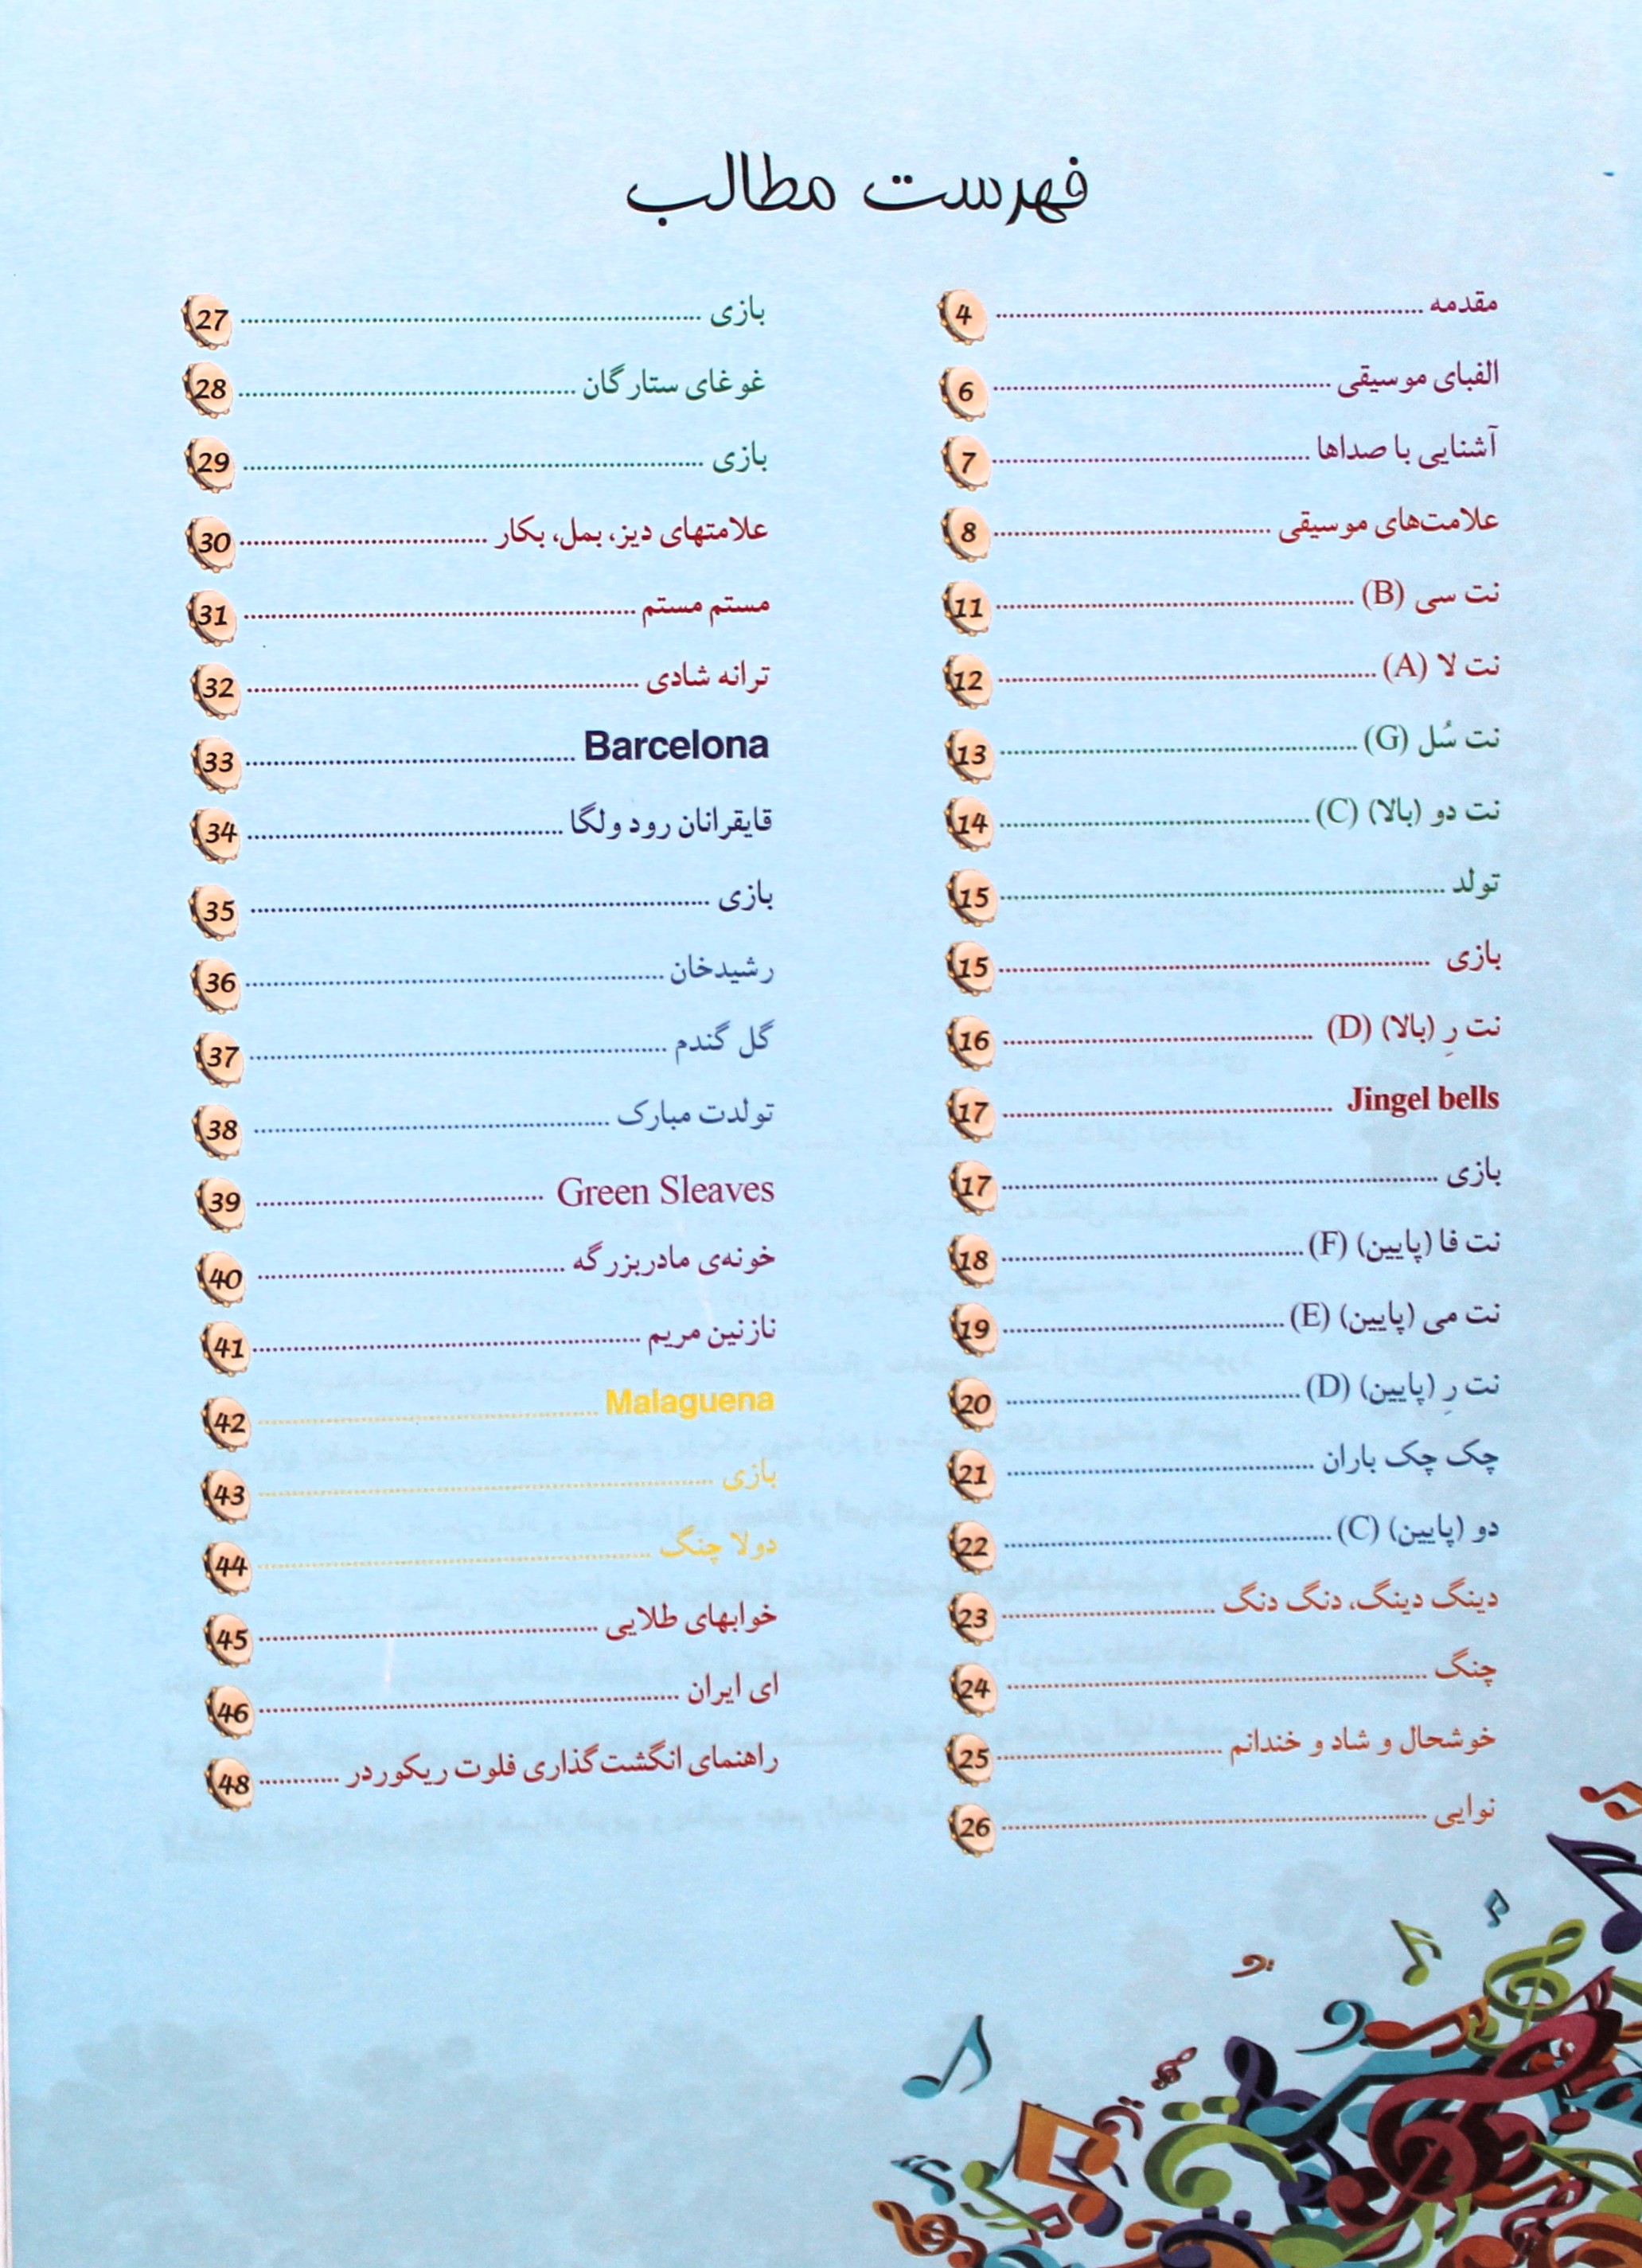 فهرست مطالب
مقدمه ........ 4
الفبای موسیقی ........ 6
آشنایی با صداها ........ 7
علامت‌های موسیقی ........ 8
نت سی (B) ........ 11
نت لا (A) ........ 12
نت سُل (G) ........ 13
نت دو (بالا) (C) ........ 14
تولد ........ 15
بازی ........ 15
نت رِ (بالا) (D) ........ 16
Jingel bells ........ 17
بازی ........ 17
نت فا (پایین) (F) ........ 18
نت می (پایین) (E) ........ 19
نت رِ (پایین) (D) ........ 20
چک چک باران ........ 21
دو (پایین) (C) ........ 22
دینگ دینگ، دنگ دنگ ........ 23
چنگ ........ 24
خوشحال و شاد و خندانم ........ 25
نوایی ........ 26
بازی ........ 27
غوغای ستارگان ........ 28
بازی ........ 29
علامتهای دیز، بمل، بکار ........ 30
مستم مستم ........ 31
ترانه شادی ........ 32
Barcelona ........ 33
قایقرانان رود ولگا ........ 34
بازی ........ 35
رشیدخان ........ 36
گل گندم ........ 37
تولدت مبارک ........ 38
Green Sleaves ........ 39
خونه‌ی مادربزرگه ........ 40
نازنین مریم ........ 41
Malaguena ........ 42
بازی ........ 43
دولا چنگ ........ 44
خوابهای طلایی ........ 45
ای ایران ........ 46
راهنمای انگشت‌گذاری فلوت ریکوردر ........ 48